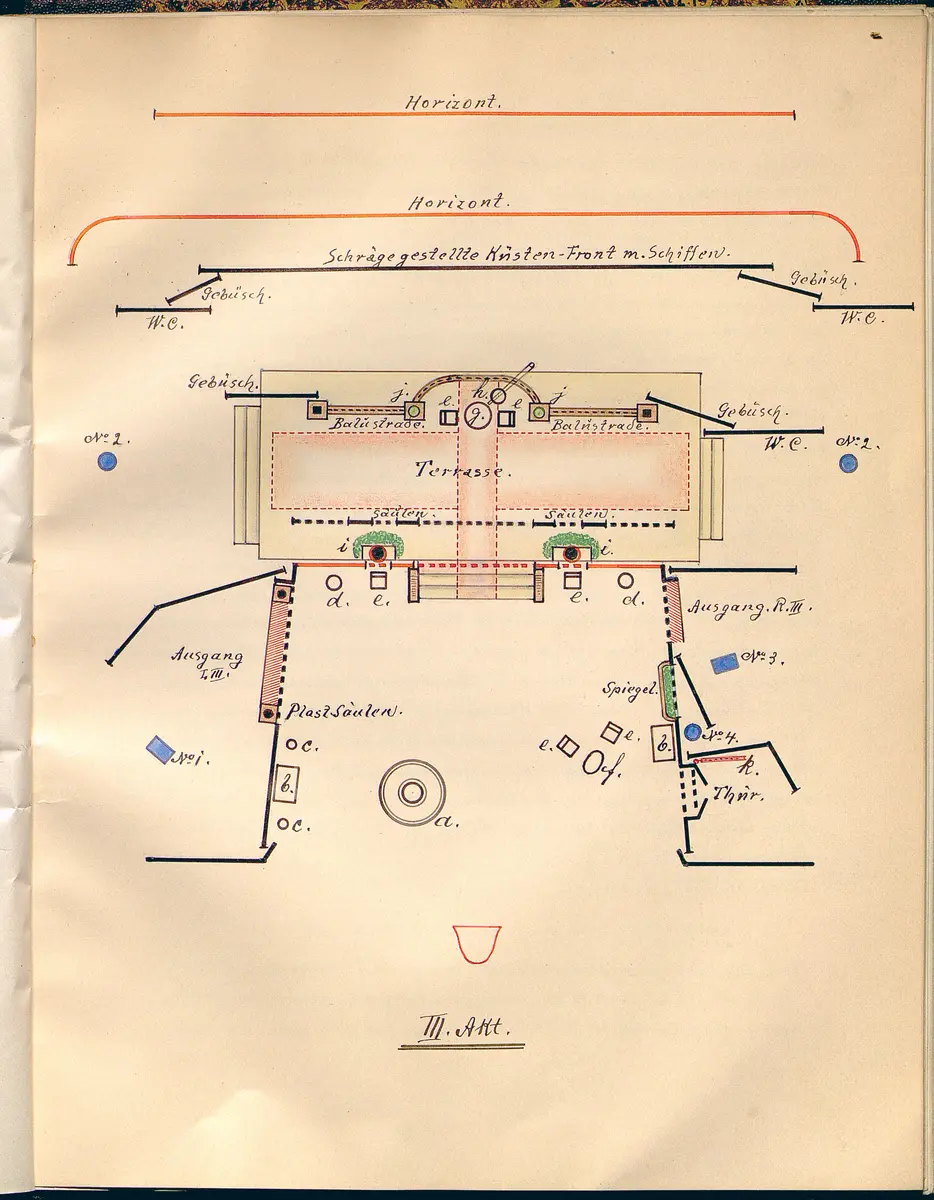 Horizont.
Horizont.
Schräge gestellte Küsten-Front m. Schiffen.
Gebüsch.
Gebüsch.
W.C.
W.C.
Gebüsch.
j.
h.
j
e.
g.
e
Gebüsch.
Balustrade.
Balustrade.
No 2.
W.C.
No 2.
Terrasse.
Säulen.
Säulen.
i
i.
d.
e.
e.
d.
Ausgang. R. III.
Ausgang
I. III.
No 3.
Spiegel.
Plast Säulen.
e.
e.
b.
No 4.
No 1.
c.
f.
k.
b.
Thür.
c.
a.
III. Akt.